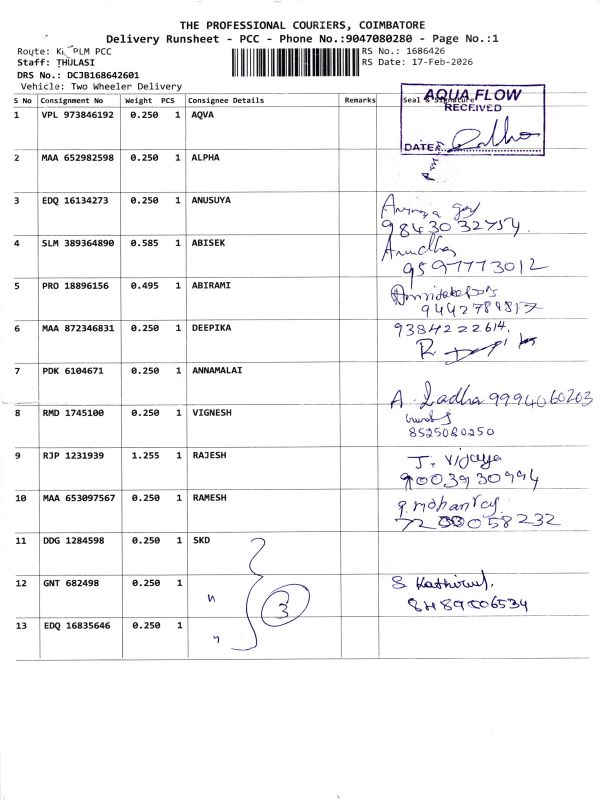 THE PROFESSIONAL COURIERS, COIMBATORE
Delivery Runsheet - PCC - Phone No.:9047080280 - Page No.:1
Route: PLM PCC
RS No.: 1686426
Staff: THULASI
RS Date: 17-Feb-2026
DRS No.: DCJB168642601
Vehicle: Two Wheeler Delivery
S No Consignment No Weight PCS Consignee Details Remarks Seal & Signature
AQUA FLOW
RECEIVED
DATE
1 VPL 973846192 0.250 1 AQVA
2 MAA 652982598 0.250 1 ALPHA
3 EDQ 16134273 0.250 1 ANUSUYA
9843032754
4 SLM 389364890 0.585 1 ABISEK
Anudha
9597773012
5 PRO 18896156 0.495 1 ABIRAMI
9442789817
6 MAA 872346831 0.250 1 DEEPIKA
9384222614.
7 PDK 6104671 0.250 1 ANNAMALAI
A. Ladha 9994060203
8 RMD 1745100 0.250 1 VIGNESH
8525080250
9 RJP 1231939 1.255 1 RAJESH
J. Vijaya
9003930994
10 MAA 653097567 0.250 1 RAMESH
58232
11 DDG 1284598 0.250 1 SKD
12 GNT 682498 0.250 1 "
3
S. Kathirvel.
13 EDQ 16835646 0.250 1 "